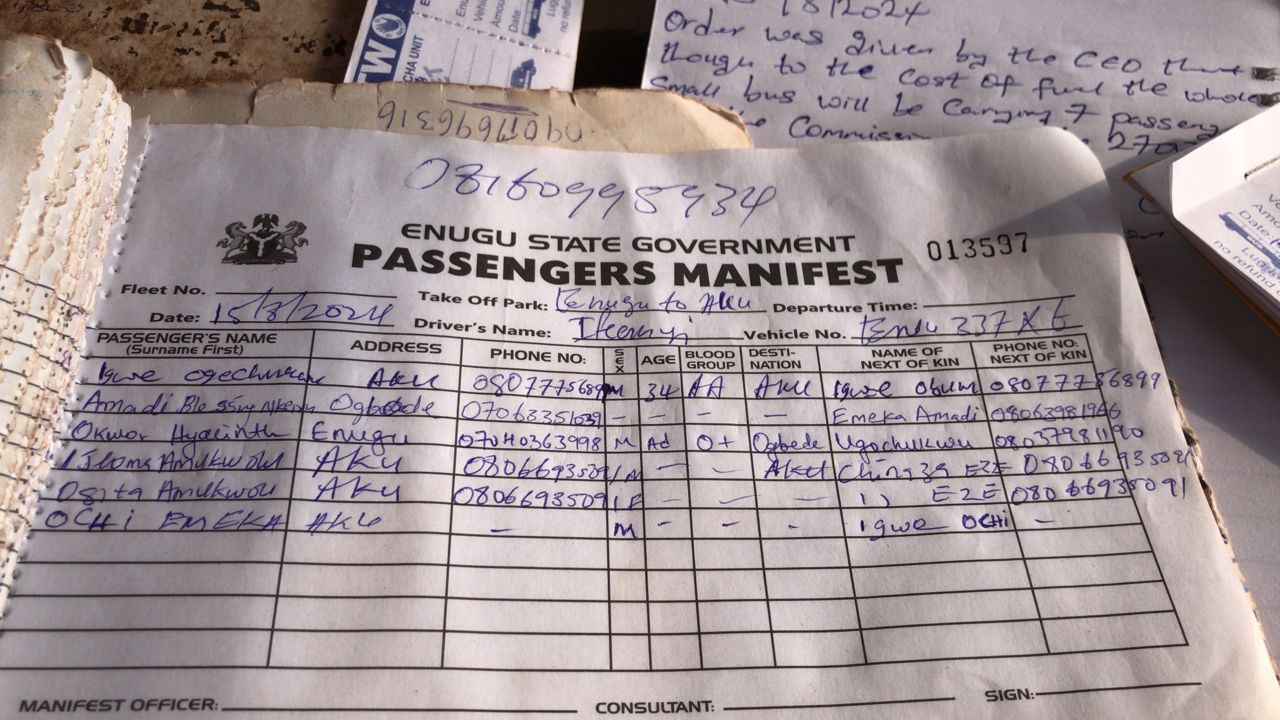 /8/2024
Order was given by the CEO that
though to the cost of fuel the whole
small bus will be carrying 7 passeng
Commiss 270
CHA UNIT
no refun
09017696316
08160995934
ENUGU STATE GOVERNMENT
PASSENGERS MANIFEST
013597
Fleet No. Take Off Park: Enugu to AKU Departure Time:
Date: 15/8/2024 Driver's Name: Ikenyi Vehicle No.
PASSENGER'S NAME (Surname First) ADDRESS PHONE NO: SEX AGE BLOOD GROUP DESTI-NATION NAME OF NEXT OF KIN PHONE NO: NEXT OF KIN
Igwe Ogechukwu AKU 08077756899 M 34 AA AKU Igwe Obum 08077756899
Amadi Blessing Ogbede 07063351039 - - - - Emeka Amadi 08063981966
Okwor Hyacinth Enugu 07040363998 M Ad O+ Ogbede Ugochukwu 08037981190
Ifeoma Amukwou AKU 08066935091 M - - AKU Chineze EZE 08066935091
Ogita Amukwou AKU 08066935091 F - - - ,, EZE 08066935091
OCHI EMEKA AKU - M - - - Igwe OCHI -
MANIFEST OFFICER: CONSULTANT: SIGN: